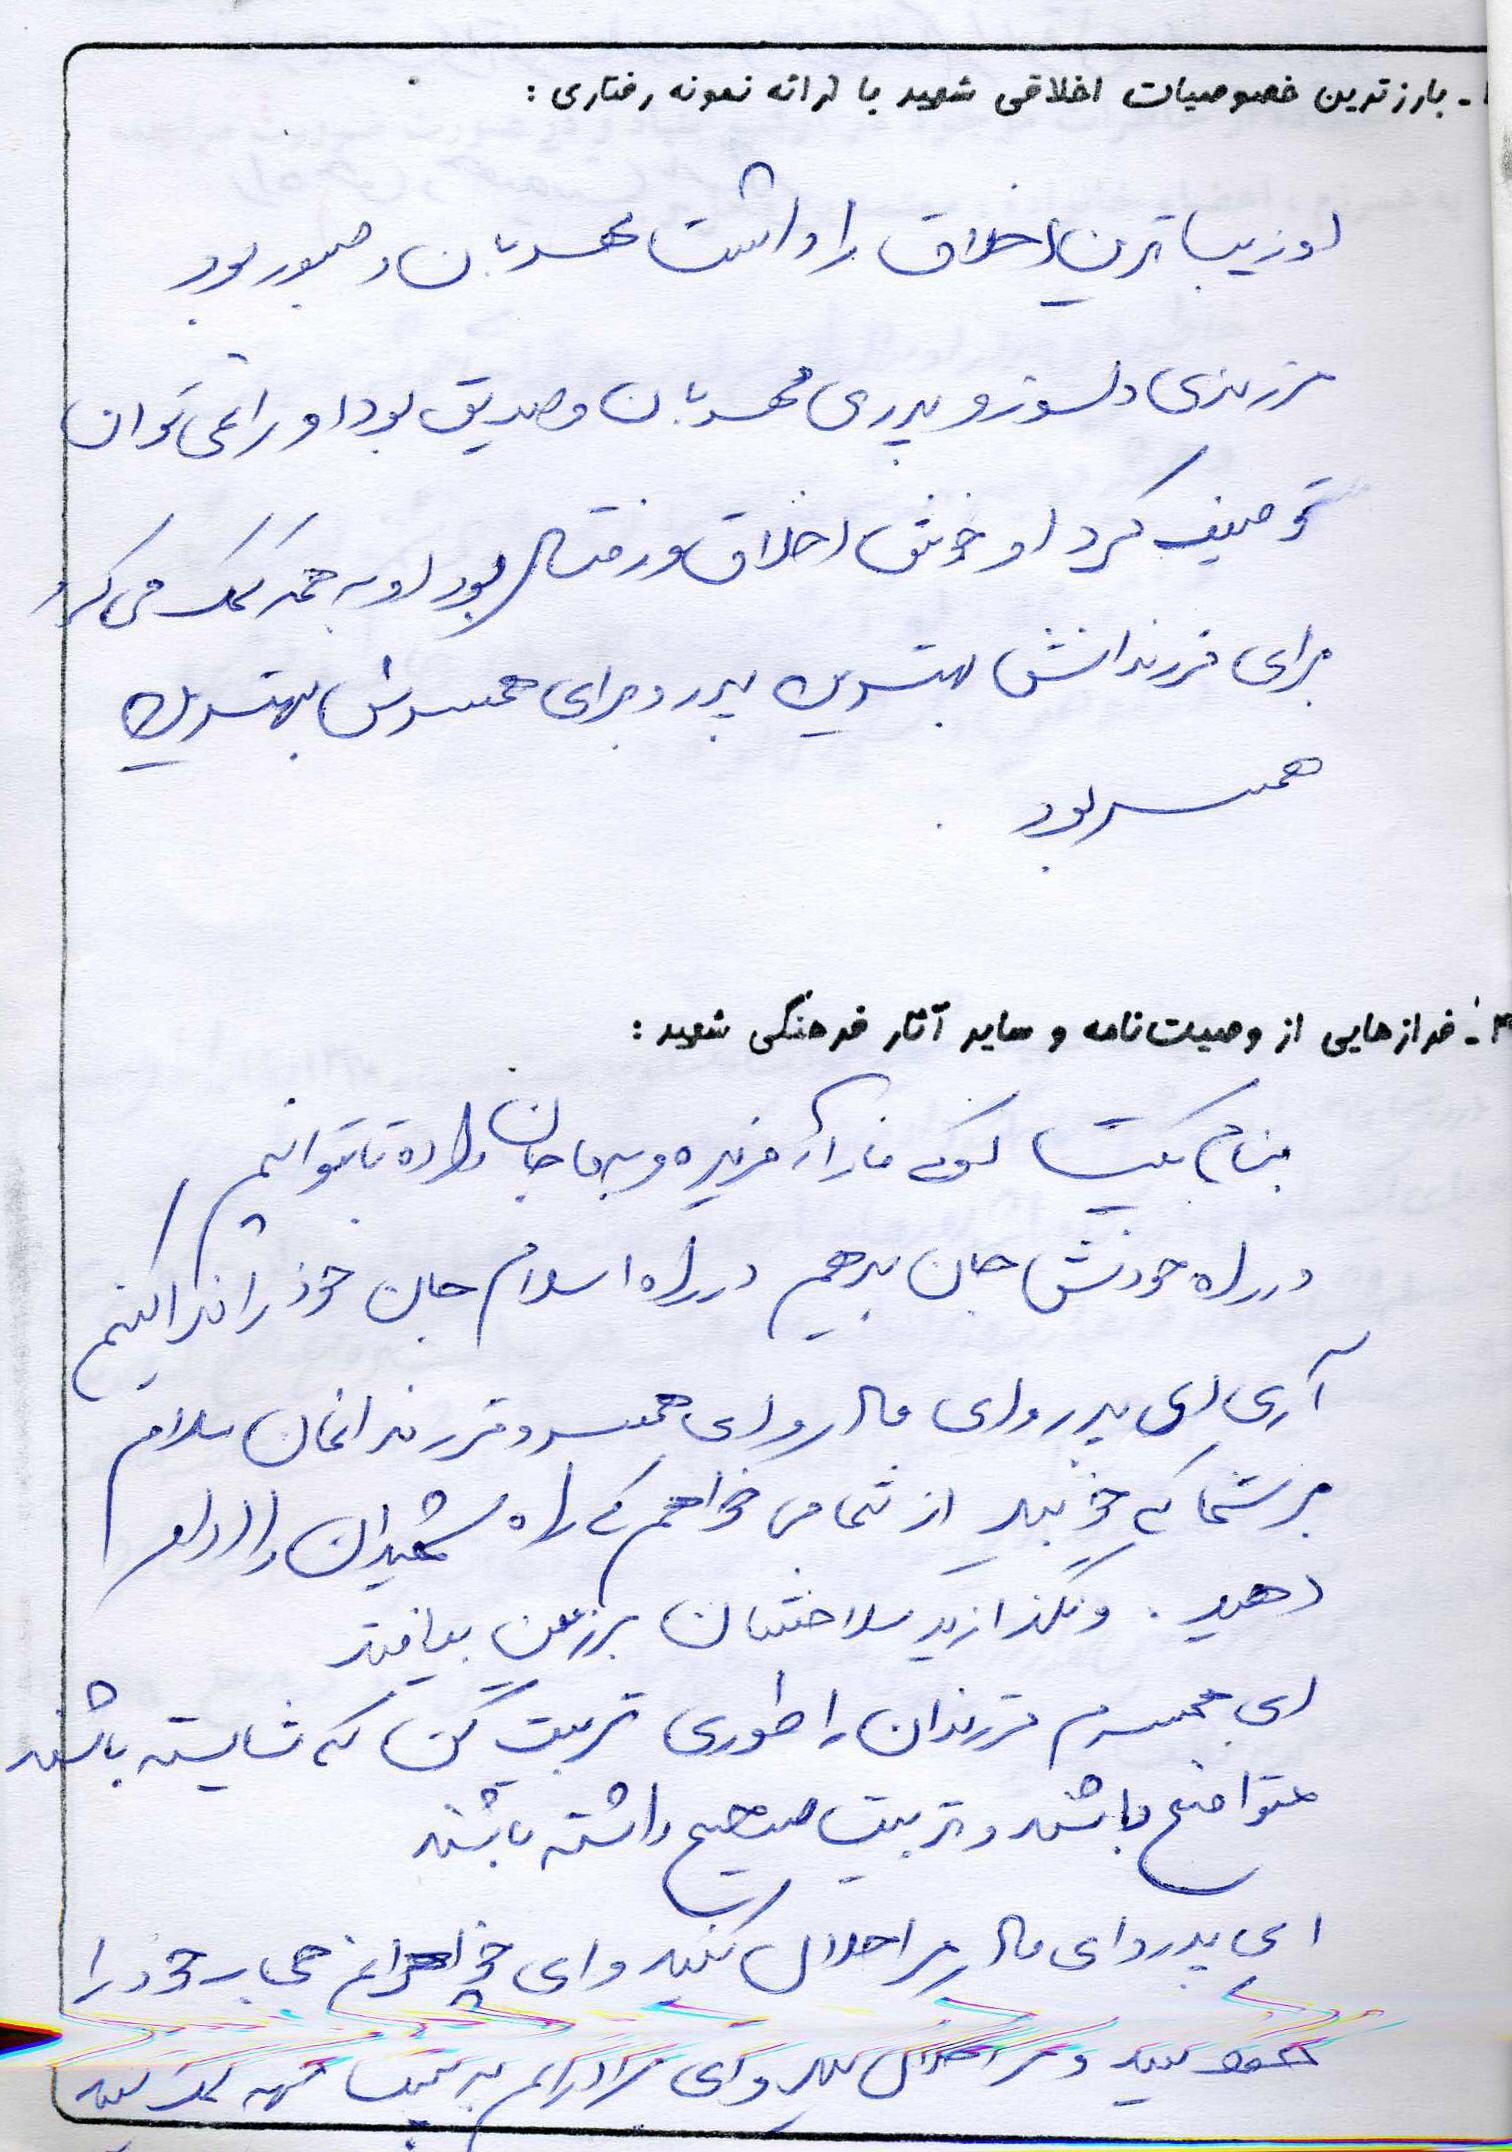 ـ بارزترین خصوصیات اخلاقی شهید با ارائه نمونه رفتاری :
او زیباترین اخلاق را داشت مهربان و صبور بود
فرزندی دلسوز و پدری مهربان و صدیق بود او را نمی توان
توصیف کرد او خوش اخلاق و رفتار بود او به همه کمک می کرد
برای فرزندانش بهترین پدر و برای همسرش بهترین
همسر بود .
۳ـ فرازهایی از وصیت‌نامه و سایر آثار فرهنگی شهید :
بنام یکتا که ما را آفریده و به ما جان داده تا بتوانیم
در راه خودش جان بدهیم در راه اسلام جان خود را فدا کنیم
آری ای پدر و ای مادر و ای همسر و فرزندانمان سلام
بر شما که خوبید از شما می خواهم که راه شهیدان را ادامه
دهید . و نگذارید سلاحشان بر زمین بیافتد
ای همسرم فرزندان را طوری تربیت کن که شایسته باشند
متواضع باشند و تربیت صحیح داشته باشند
ای پدر و ای مادر مرا حلال کنید و ای خواهرانم حجاب خود را
حفظ کنید و مرا حلال کنید و ای برادرانم به کمک کنید